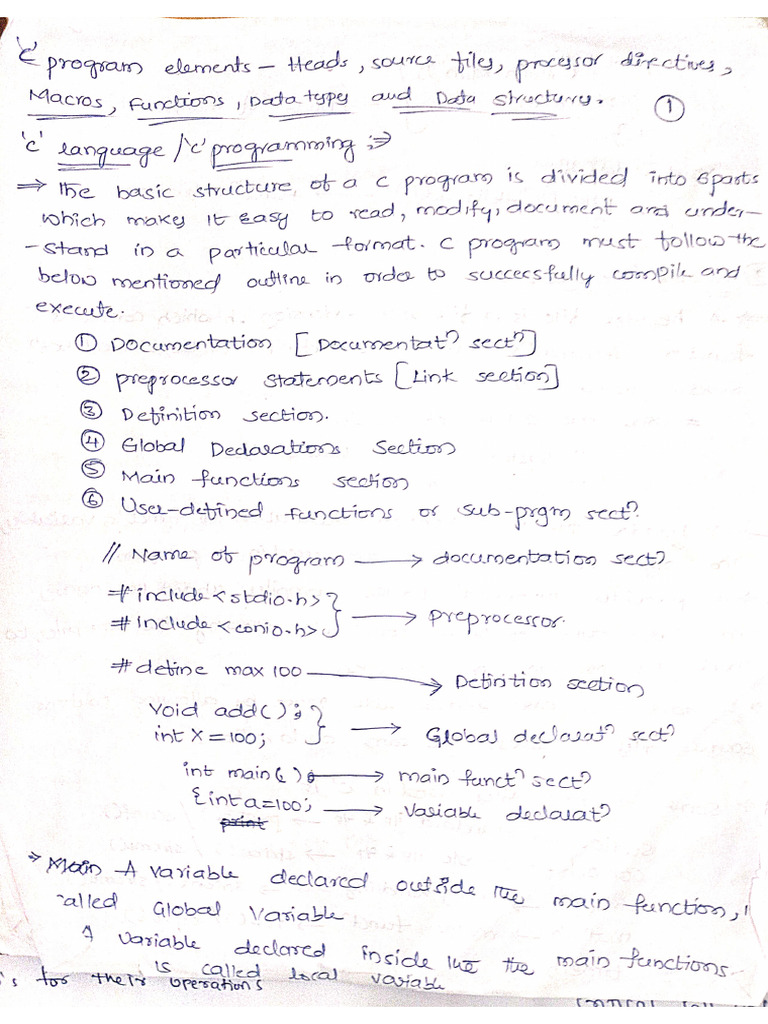 'C' program elements – Heads, source files, processor directives,
Macros, Functions, Data types and Data structures. ①
'C' language / 'C' programming :⇒
⇒ The basic structure of a C program is divided into 6 parts
which makes it easy to read, modify, document and under-
-stand in a particular format. C program must follow the
below mentioned outline in order to successfully compile and
execute.
① Documentation [Documentatⁿ sectⁿ]
② preprocessor statements [Link section]
③ Definition section.
④ Global Declarations Section
⑤ Main functions section
⑥ User-defined functions or sub-prgm sectⁿ
// Name of program ⟶ documentation sectⁿ
#include <stdio.h>
#include <conio.h> } ⟶ preprocessor.
#define max 100 ⟶ Definition section
void add();
int x=100; } ⟶ Global declaratⁿ sectⁿ
int main() ⟶ main functⁿ sectⁿ
{int a=100; ⟶ variable declaratⁿ
print
⇒ Main – A variable declared outside the main function,
called Global Variable
A variable declared inside the the main functions.
is called local variable
's for their operations